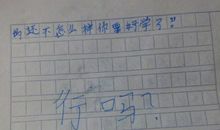 还不怎么样你要好学了!!
行吗?